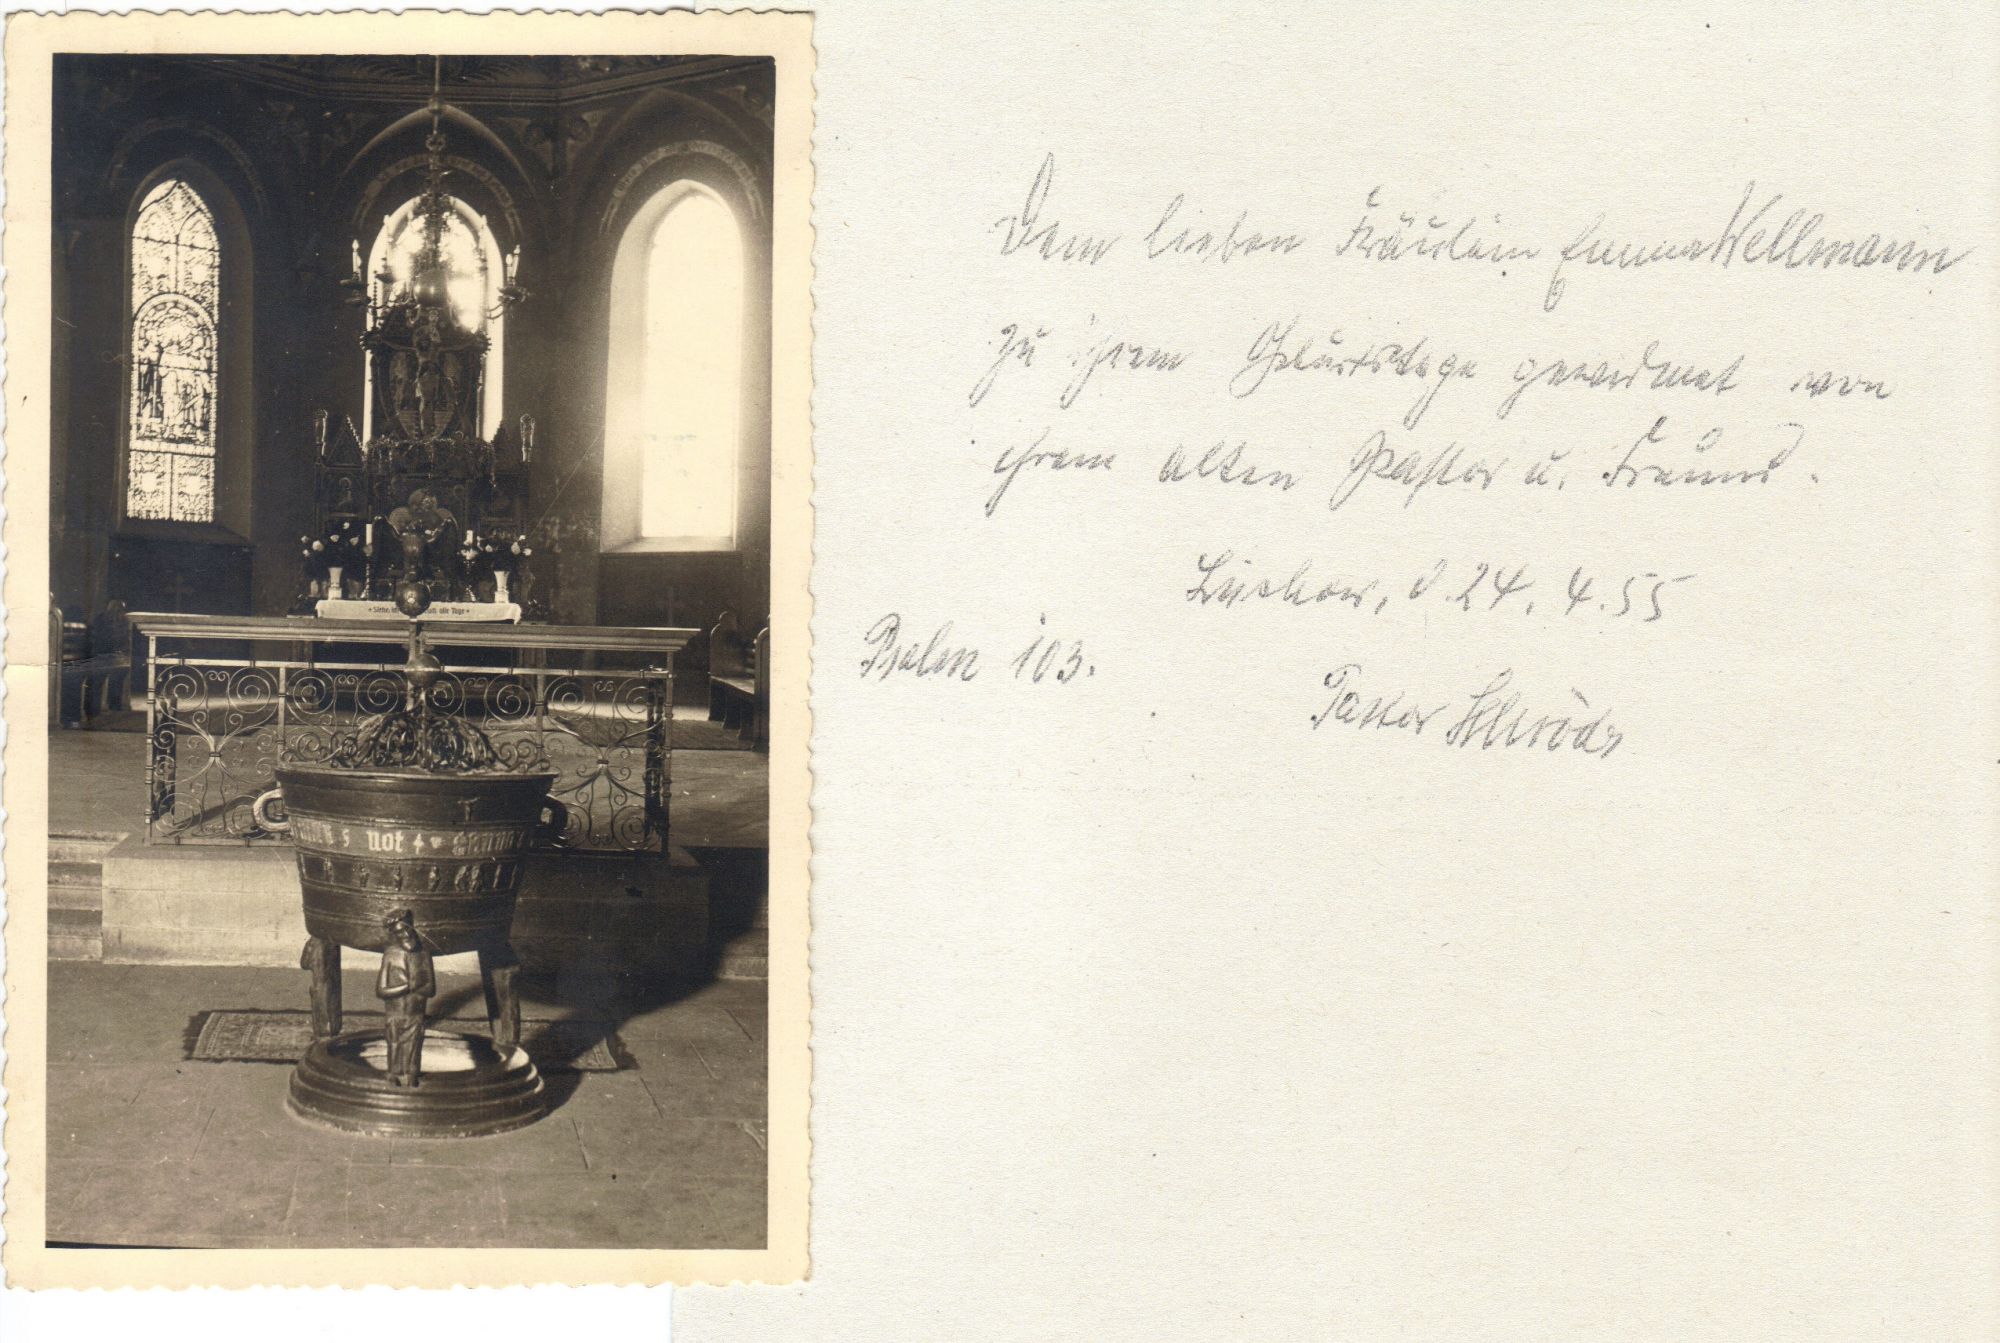 Siehe, alle Tage
not
Dem lieben Fräulein Emma Wellmann
zu ihrem Geburtstage gewidmet von
ihrem alten Pastor u. Freund.
Lüchow, d. 24. 4. 55
Psalm 103.
Pastor